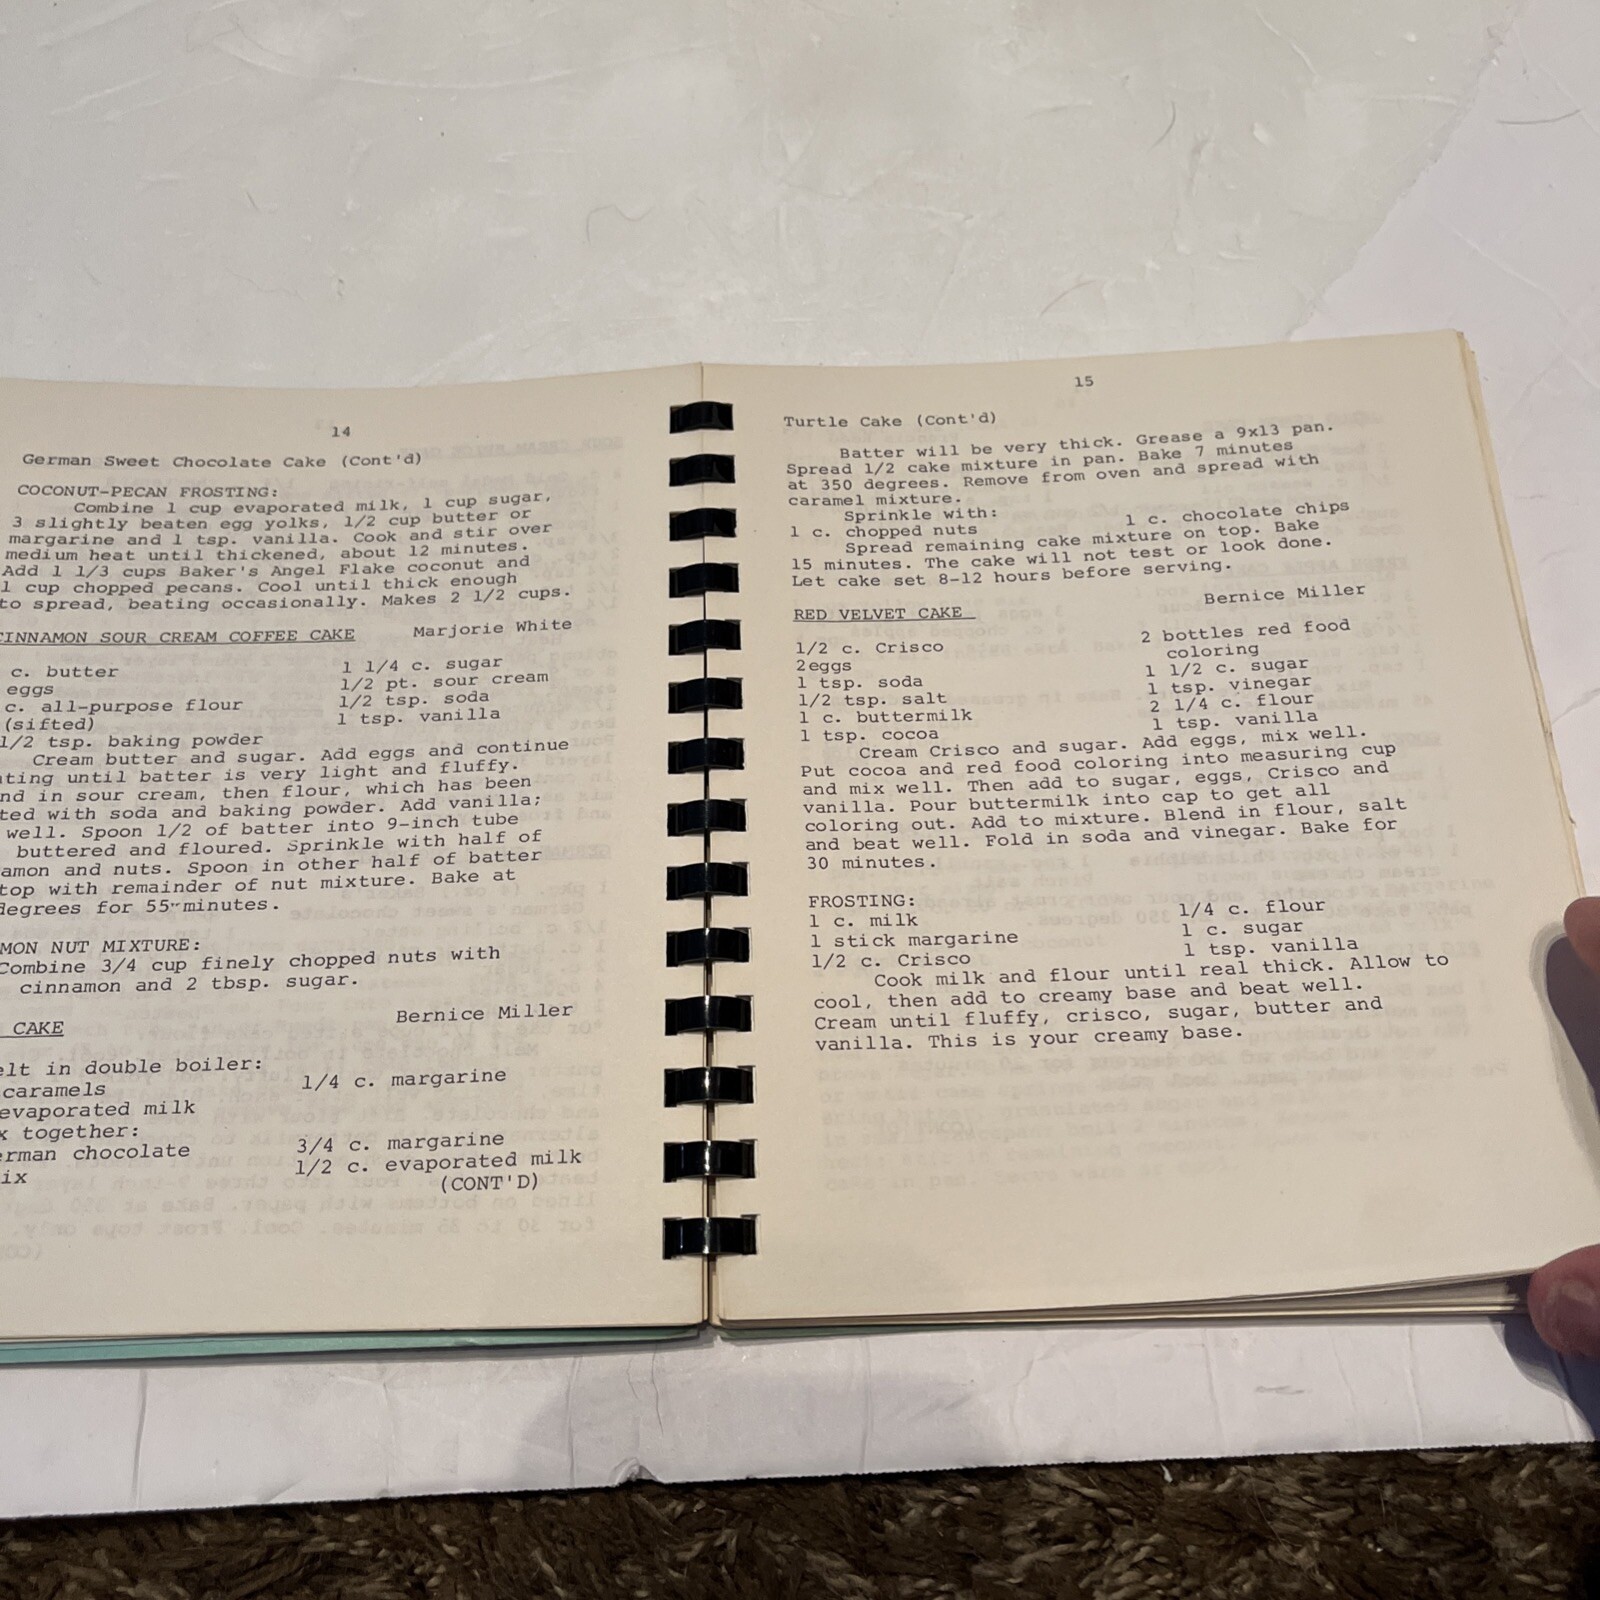 14
German Sweet Chocolate Cake (Cont'd)
COCONUT-PECAN FROSTING:
Combine 1 cup evaporated milk, 1 cup sugar,
3 slightly beaten egg yolks, 1/2 cup butter or
margarine and 1 tsp. vanilla. Cook and stir over
medium heat until thickened, about 12 minutes.
Add 1 1/3 cups Baker's Angel Flake coconut and
1 cup chopped pecans. Cool until thick enough
to spread, beating occasionally. Makes 2 1/2 cups.
CINNAMON SOUR CREAM COFFEE CAKE Marjorie White
c. butter 1 1/4 c. sugar
eggs 1/2 pt. sour cream
c. all-purpose flour 1/2 tsp. soda
(sifted) 1 tsp. vanilla
1/2 tsp. baking powder
Cream butter and sugar. Add eggs and continue
ting until batter is very light and fluffy.
nd in sour cream, then flour, which has been
ted with soda and baking powder. Add vanilla;
well. Spoon 1/2 of batter into 9-inch tube
buttered and floured. Sprinkle with half of
amon and nuts. Spoon in other half of batter
top with remainder of nut mixture. Bake at
degrees for 55 minutes.
MON NUT MIXTURE:
Combine 3/4 cup finely chopped nuts with
cinnamon and 2 tbsp. sugar.
CAKE Bernice Miller
elt in double boiler:
caramels 1/4 c. margarine
evaporated milk
x together:
erman chocolate 3/4 c. margarine
ix 1/2 c. evaporated milk
(CONT'D)
15
Turtle Cake (Cont'd)
Batter will be very thick. Grease a 9x13 pan.
Spread 1/2 cake mixture in pan. Bake 7 minutes
at 350 degrees. Remove from oven and spread with
caramel mixture.
Sprinkle with:
1 c. chopped nuts 1 c. chocolate chips
Spread remaining cake mixture on top. Bake
15 minutes. The cake will not test or look done.
Let cake set 8-12 hours before serving.
RED VELVET CAKE Bernice Miller
1/2 c. Crisco 2 bottles red food
2eggs coloring
1 tsp. soda 1 1/2 c. sugar
1/2 tsp. salt 1 tsp. vinegar
1 c. buttermilk 2 1/4 c. flour
1 tsp. cocoa 1 tsp. vanilla
Cream Crisco and sugar. Add eggs, mix well.
Put cocoa and red food coloring into measuring cup
and mix well. Then add to sugar, eggs, Crisco and
vanilla. Pour buttermilk into cap to get all
coloring out. Add to mixture. Blend in flour, salt
and beat well. Fold in soda and vinegar. Bake for
30 minutes.
FROSTING:
1 c. milk 1/4 c. flour
1 stick margarine 1 c. sugar
1/2 c. Crisco 1 tsp. vanilla
Cook milk and flour until real thick. Allow to
cool, then add to creamy base and beat well.
Cream until fluffy, crisco, sugar, butter and
vanilla. This is your creamy base.